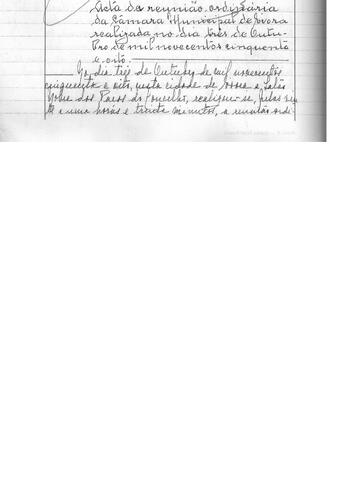 Acta da reunião ordinária
da Câmara Municipal de Évora
realizada no dia três de Outu-
bro de mil novecentos cinquenta
e oito.
No dia três de Outubro de mil novecentos
cinquenta e oito, nesta cidade de Évora e Salão
Nobre dos Paços do Concelho, realizou-se, pelas vin
te e uma horas e trinta minutos, a reunião ordi-